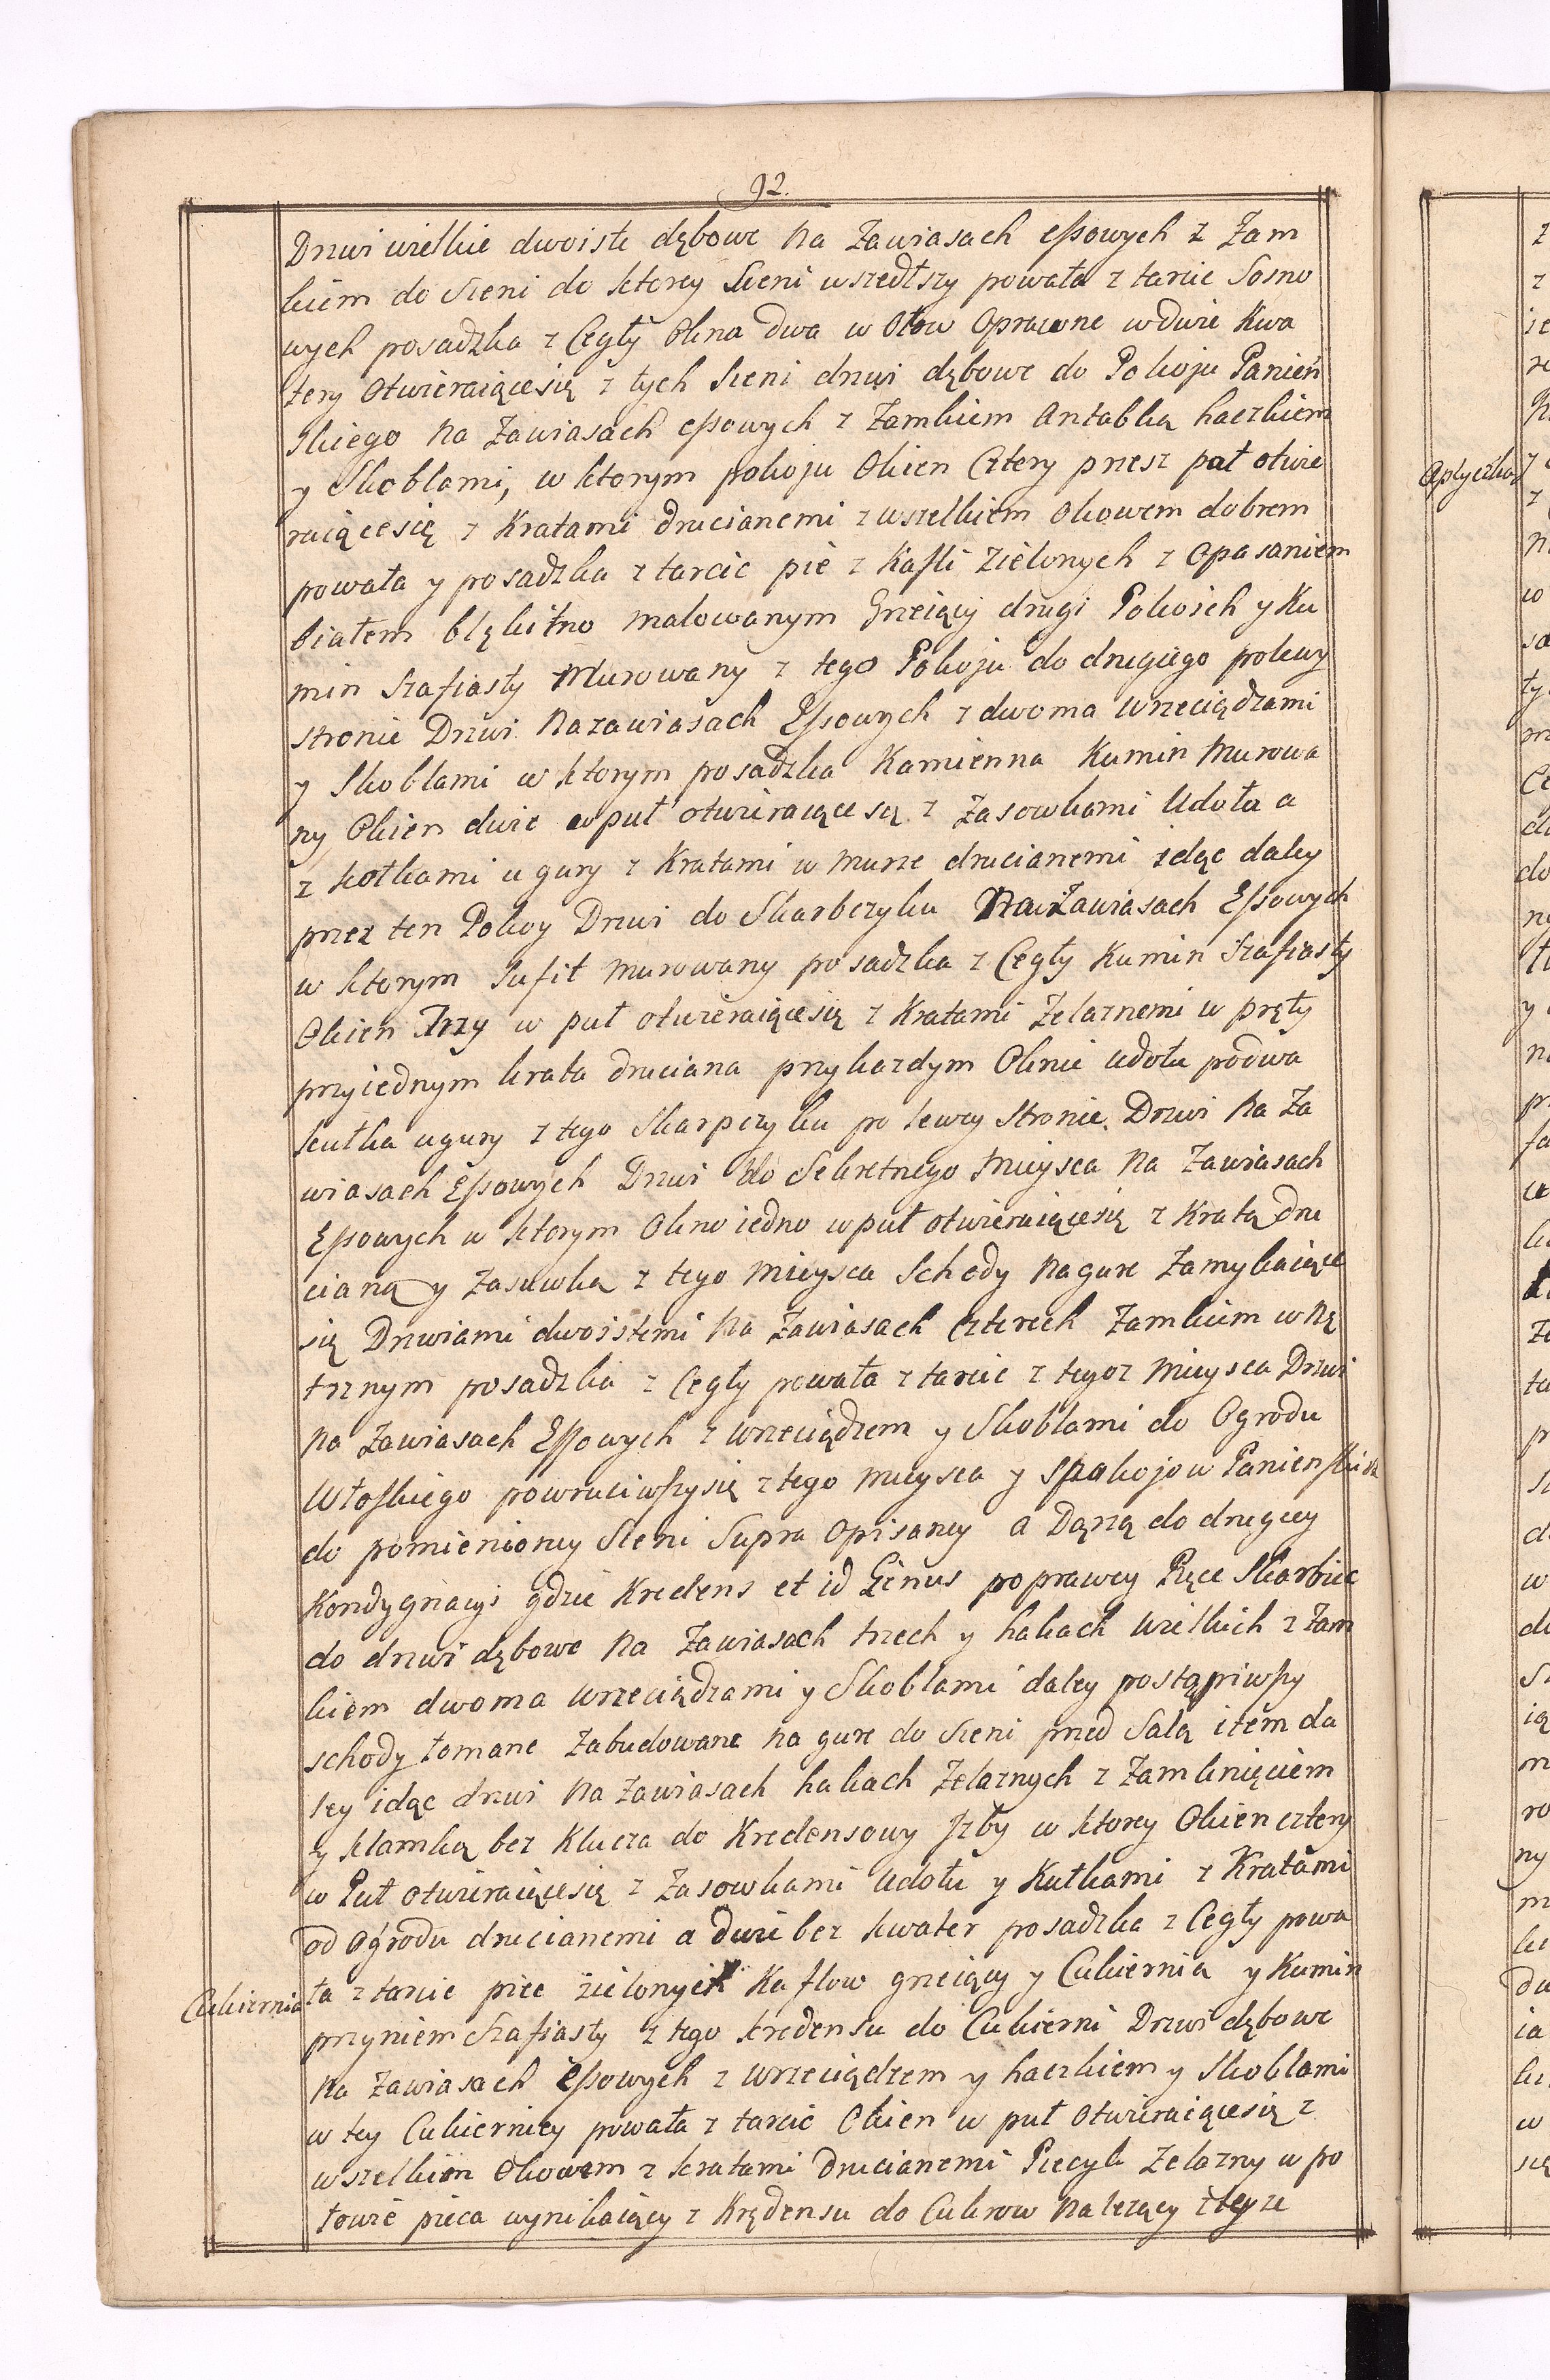 92.
Drzwi wielkie dwoiste dębowe na Zawiasach essowych z Zam
kiem do Sieni do ktorey Sieni wszedłszy powała z tarcic Sosno
wych posadzka z Cegły Okna dwa w Ołow Oprawne w dwie Kwa
tery Otwieraiącesię z tych Sieni drzwi dębowe do Pokoju Panień
skiego na Zawiasach essowych z Zamkiem Antabką haczkiem
y Skoblami, w ktorym pokoju Okien Cztery przesz pał otwie
raiącesię z Kratami drucianemi z wszelkiem Okowem dobrem
powała y posadzka z tarcic pie z Kafli Zielonych z Opasaniem
białem błękitno malowanym Grzeiący drugi Pokoich y Ku
min Szafiasty Murowany z tego Pokoju do drugiego polewy
stronie Drzwi Nazawiasach Essowych z dwoma Wrzeciądzami
y Skoblami w ktorym posadzka Kamienna Kumin Murowa
ny Okien dwie w puł otwieraiące są z Zasowkami Udołu a
z kołkami u gury z Kratami w murze drucianemi idąc daley
przez ten Pokoy Drzwi do Skarbczyku Na Zawiasach Essowych
w ktorym Sufit murowany posadzka z Cegły Kumin Szafiasty
Okien Trzy w puł otwieraiącesię z Kratami Żelaznemi w pręty
przyiednym krata druciana przykazdym Oknie Udołu podwa
kułka ugury z tego Skarpczyku po lewey Stronie Drzwi na Za
wiasach Essowych Drzwi do Sekretnego Mieysca na Zawiasach
Essowych w ktorym Okno iedno w puł otwieraiącesię z Kratą dru
cianą y Zasuwką z tego Mieysca Schody nagure Zamykaiące
się Drzwiami dwoistemi na Zawiasach Czterech Zamkiem wnę
trznym posadzka z Cegły powała z tarcic z tegoz Mieysca Drzwi
na Zawiasach Essowych z Wrzeciądzem y Skoblami do Ogrodu
Włoskiego powruciwszysię z tego Mieysca y spokojow Panienskich
do pomienioney Sieni Supra opisaney a Dążą do drugiey
Kondygnacyi gdzie Kredens et id Genus poprawey Ręce Skarbiec
do drzwi dębowe na Zawiasach trzech y hakach wielkich z Zam
kiem dwoma wrzeciądzami y Skoblami daley postąpiwszy
schody łomane Zabudowane na gure do Sieni przed Salą item da
ley idąc drzwi na Zawiasach hakach Żelaznych z Zamknięciem
y klamką bez Klucza do Kredensowy Izby w ktorey Okien cztery
w Puł otwieraiącesię z Zasowkami Udołu y Kutkami z Kratami
od Ogrodu drucianemi a dwie bez kwater posadzka z Cegły powa
Cukiernia
ła z tarcic piec zielonych Kaflow grzeiący y Cukiernią y Kumin
przyniem Szafiasty z tego kredensu do Cukierni Drzwi dębowe
na Zawiasach essowych z wrzeciądzem y haczkiem y Skoblami
w tey Cukierniey powała z tarcic Okien w puł otwieraiącesię z
wszelkiem Okowem z kratami drucianemi Piecyk Żelazny w po
łowie pieca wynikaiący z Krędensu do Cukrow nalezący Zteyze
Aptyczka